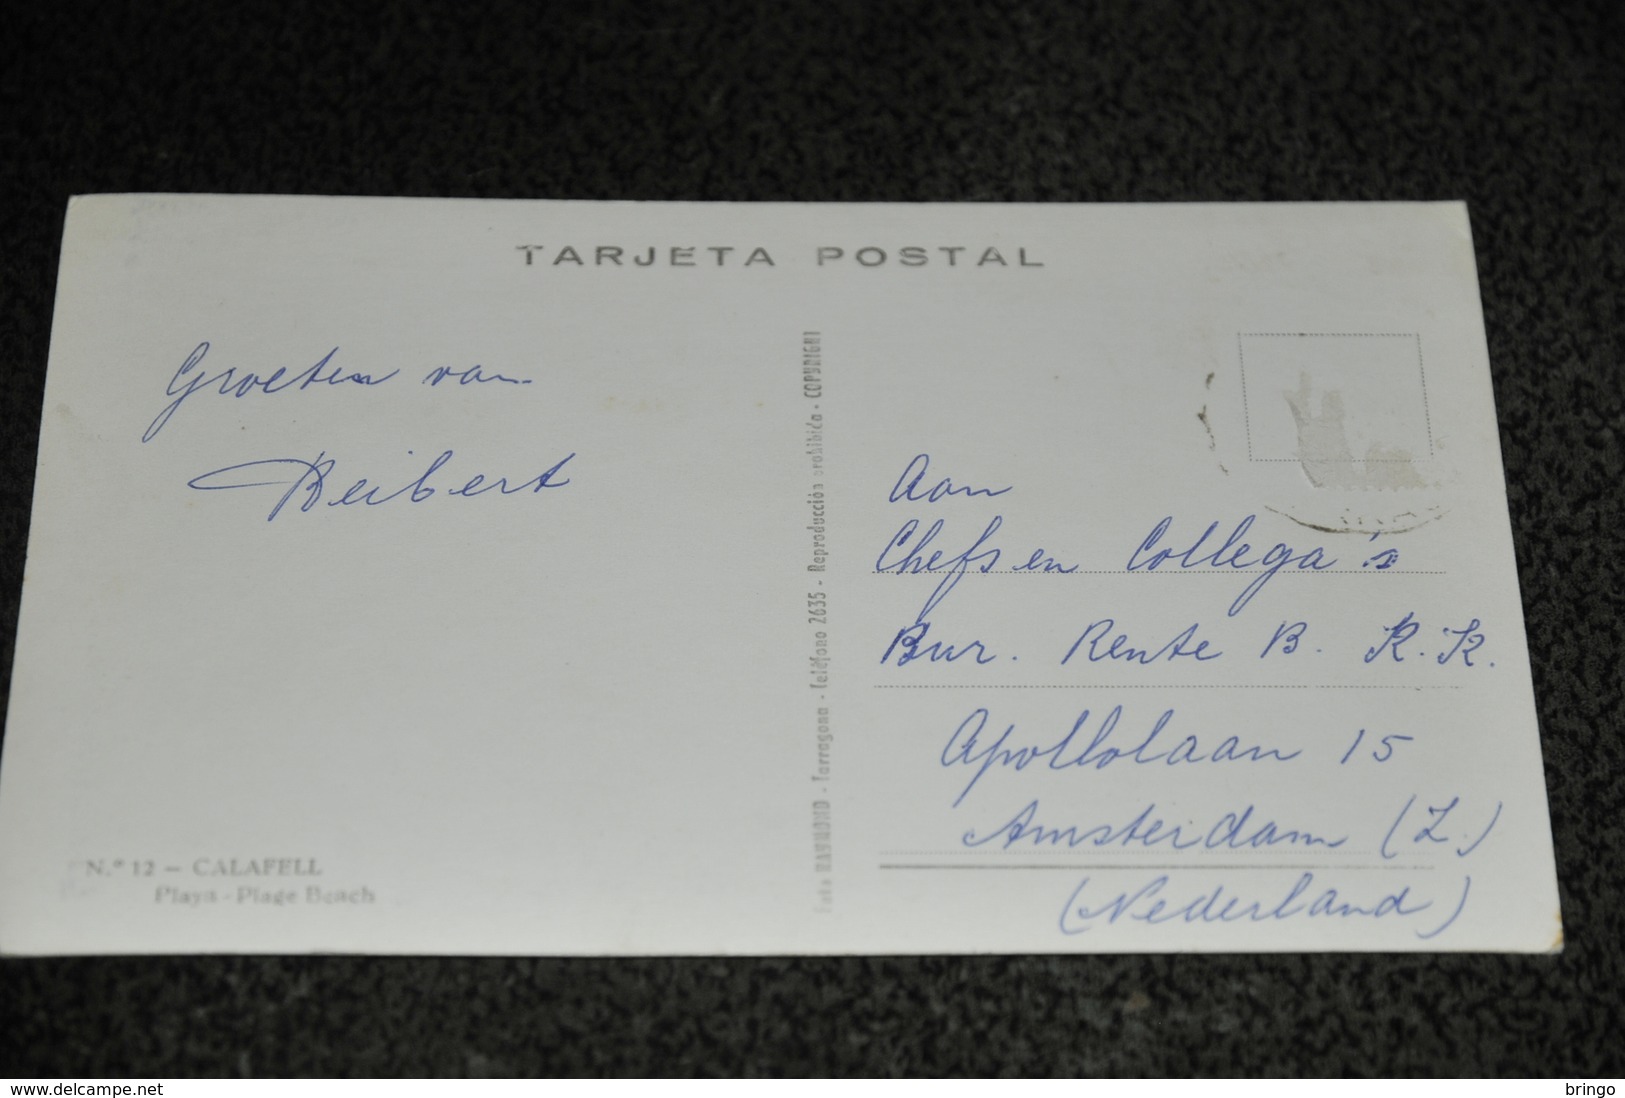 TARJETA POSTAL
Groeten van
Reibert
Foto RAYMOND - Tarragona - Teléfono 2635 - Reproducción prohibida - COPYRIGHT
Aan
Chefs en Collega's
Bur. Rente B. K.K.
Apollolaan 15
Amsterdam (Z.)
(Nederland)
N.º 12 – CALAFELL
Playa - Plage Beach
www.delcampe.net
bringo